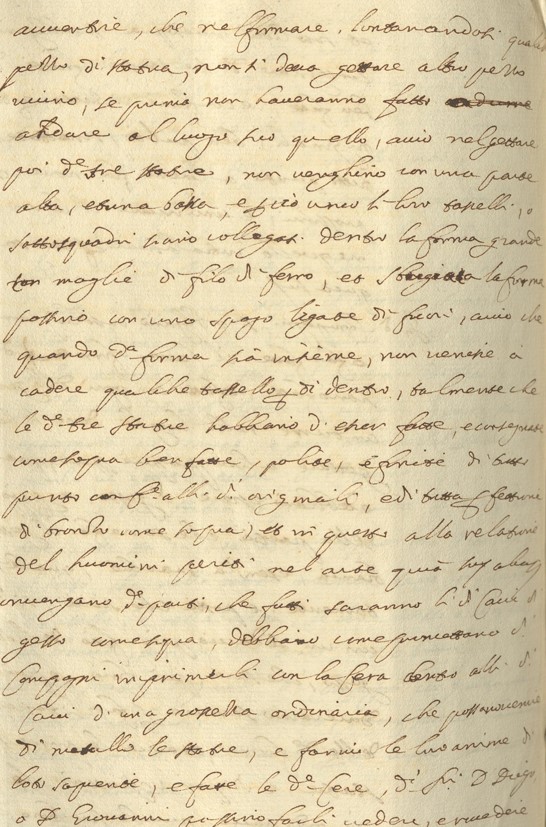 avvertire, che nel formare, lontanandosi qualche
pezzo di statua, non si deva gettare altro pezzo
vicino, se prima non haveranno fatto
andare al luogo suo quello, acciò nel gettare
poi de tre statue, non venghino con una parte
alta, et una bassa, e li loro tasselli, o
sottosquadri siano collegati dentro la forma grande
con maglie di filo di ferro, et la forma
possino con uno spago ligate di fuori, acciò che
quando da forma sia insieme, non venisse à
cadere qualche tassello di dentro, talmente che
le de tre statue habbiano d. esser fatte, e consegnate
come sopra ben fatte, polite, e finite di tutto
punto conf.e alli d.i originali, e di tutta
di bronzo come sopra, et in questo alla relatione
del huomini periti nel arte
convengano de parti, che fatti saranno li d.i Cavi di
gesso come sopra, debbano come promettono d.i
Compagni imprimerli con la cera dentro alli d.i
Cavi d. una grossezza ordinaria, che
di metallo le statue, e farvi le loro anime di
loto sapiente, e fatte le de Cere, d.i D Diego,
o D Giovanni possino farli vedere, e rivedere